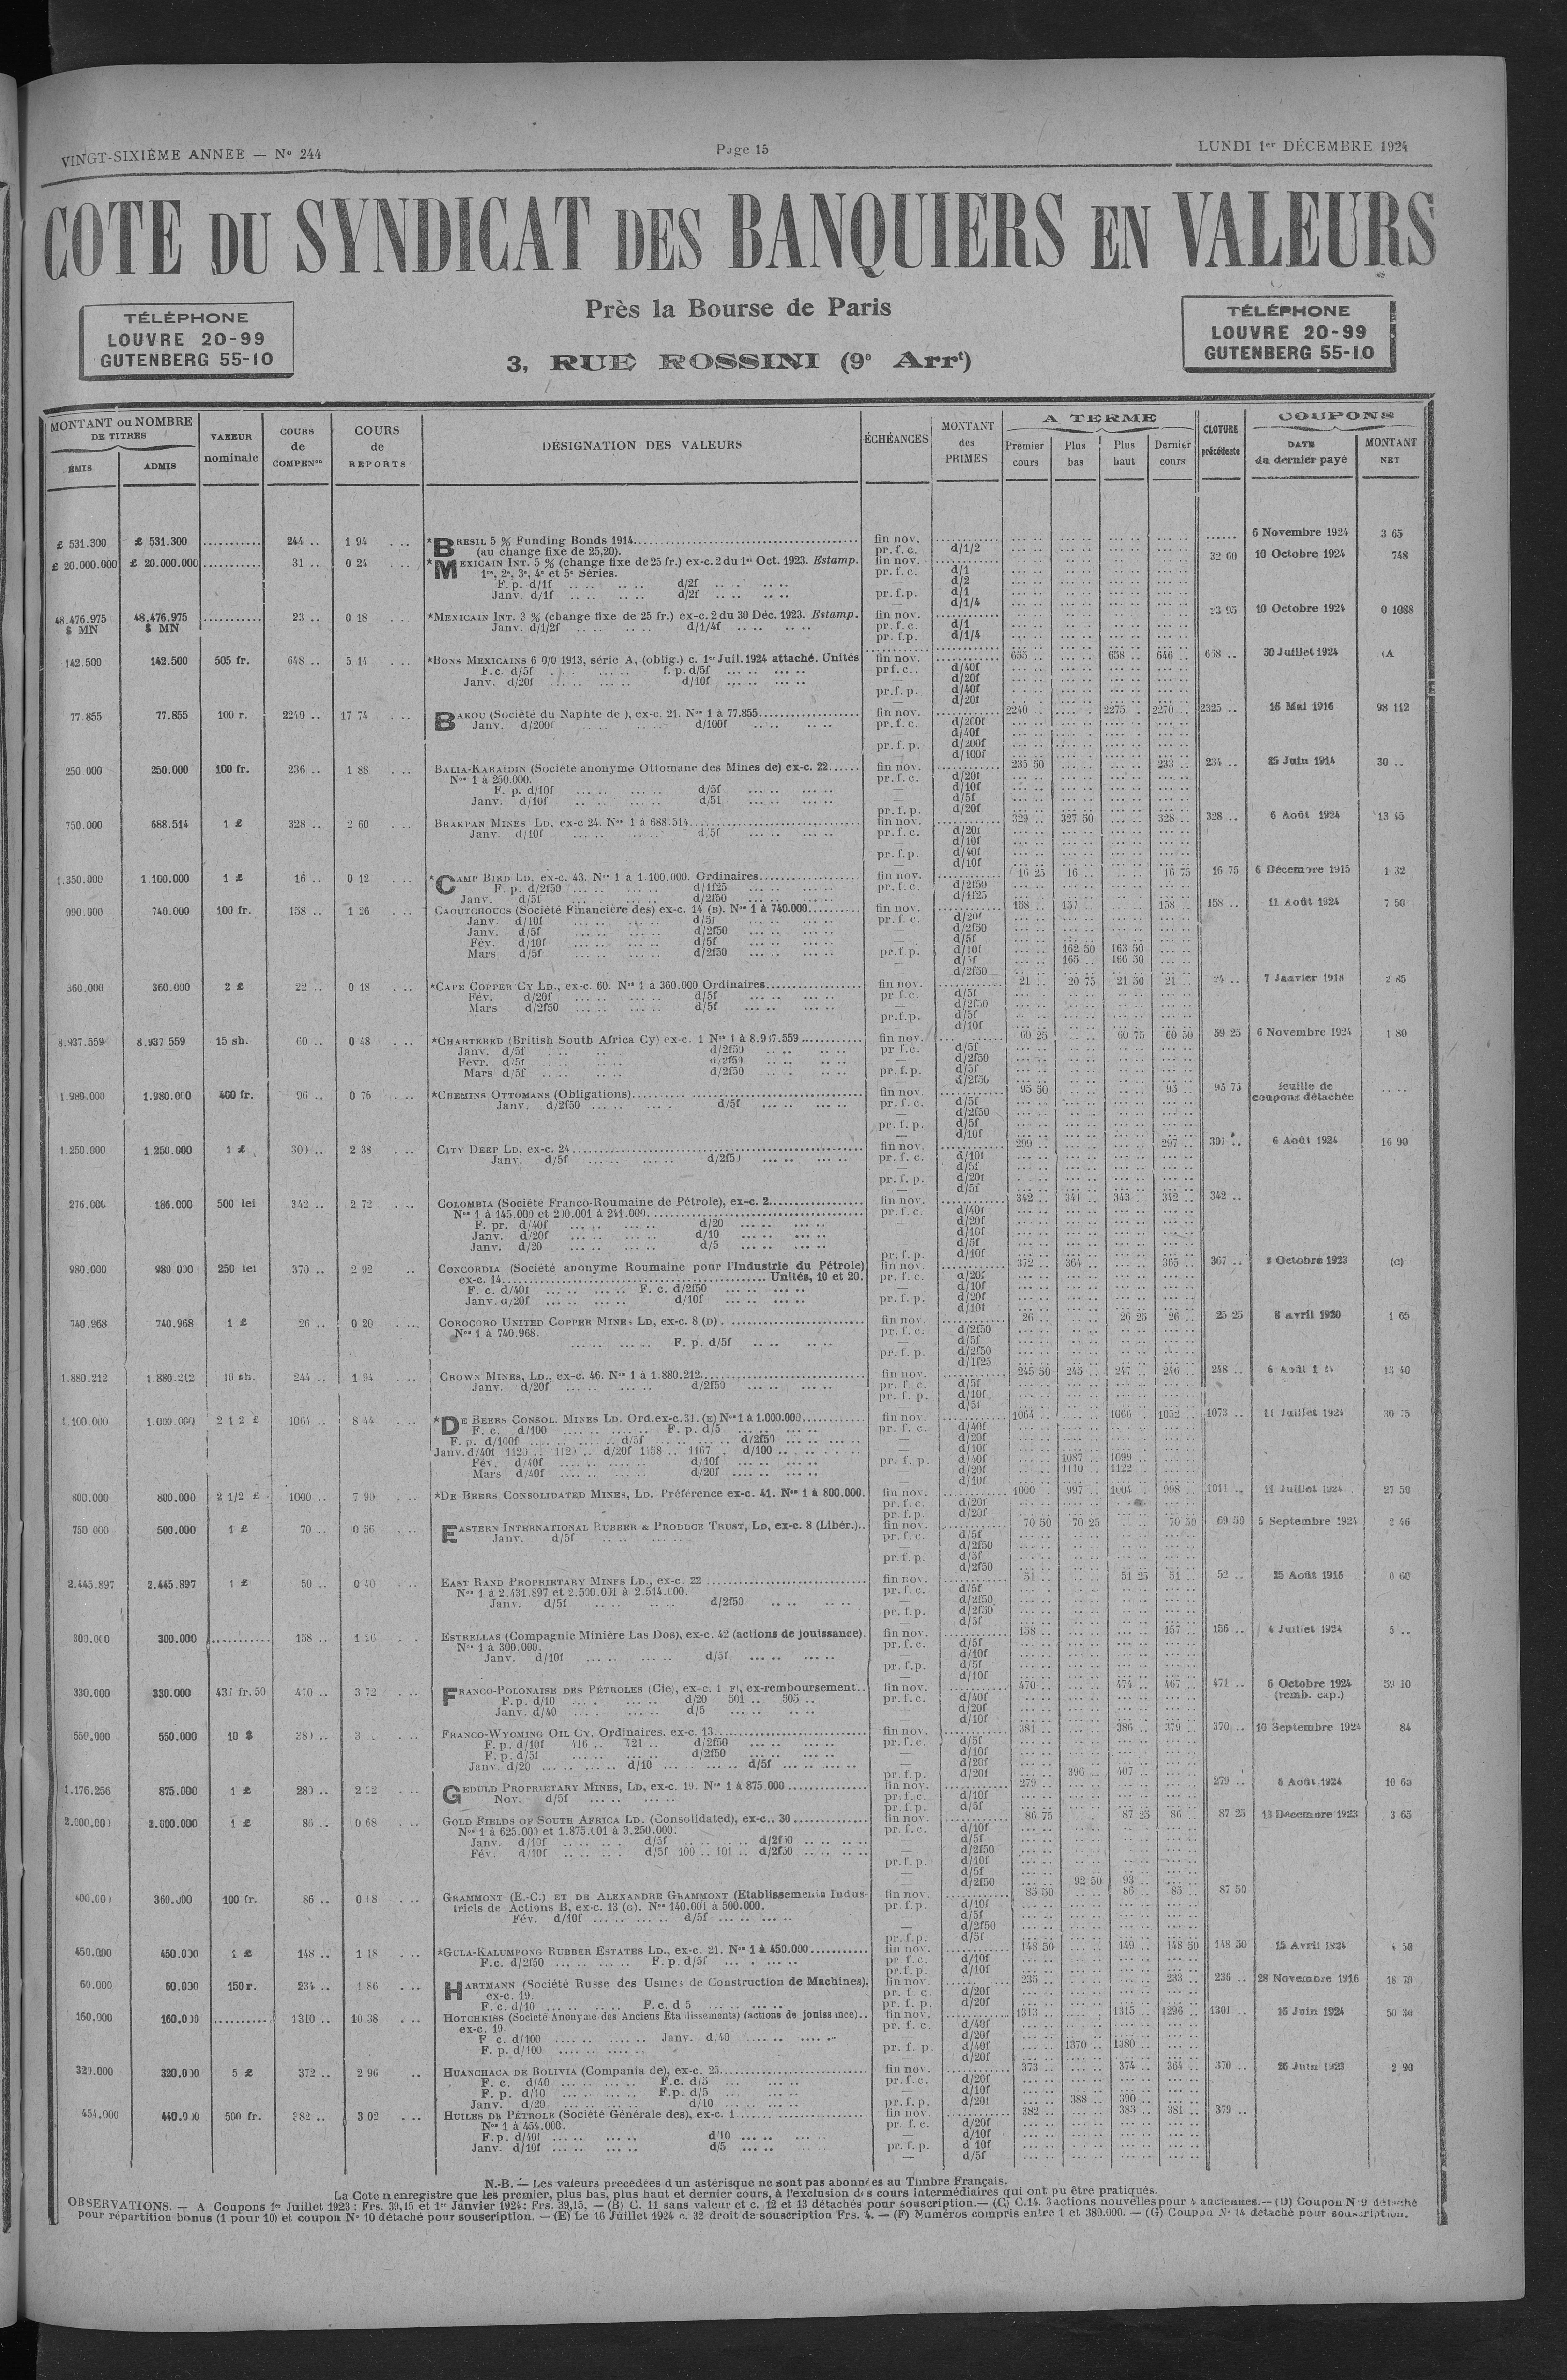 VINGT-SIXIÈME ANNEE — Nº 244
Page 15
LUNDI 1er DÉCEMBRE 1924
COTE DU SYNDICAT DES BANQUIERS EN VALEURS
TÉLÉPHONE
LOUVRE 20-99
GUTENBERG 55-10
Près la Bourse de Paris
3, RUE ROSSINI (9e Arrt)
TÉLÉPHONE
LOUVRE 20-99
GUTENBERG 55-10
MONTANT ou NOMBRE DE TITRES
ÉMIS ADMIS
VALEUR nominale
COURS de COMPENon
COURS de REPORTS
DESIGNATION DES VALEURS
ÉCHÉANCES
MONTANT des PRIMES
A TERME
Premier cours Plus bas Plus haut Dernier cours
CLOTURE précédente
COUPONS
DATE du dernier payé MONTANT NET
£ 531.300 £ 531.300 ........... 244 .. 1 94 *BRESIL 5 % Funding Bonds 1914 fin nov. 6 Novembre 1924 3 65
(au change fixe de 25,20). pr. f. c. d/1/2
£ 20.000.000 £ 20.000.000 ........... 31 .. 0 24 *MEXICAIN INT. 5 % (change fixe de 25 fr.) ex-c. 2 du 1er Oct. 1923. Estamp. fin nov. 32 60 10 Octobre 1924 748
1re, 2e, 3e, 4e et 5e Séries. pr. f. c. d/1
F. p. d/1f d/2f d/2
Janv. d/1f d/2f pr. f. p. d/1
d/1/4
48.476.975 $ MN 48.476.975 $ MN ........... 23 .. 0 18 *MEXICAIN INT. 3 % (change fixe de 25 fr.) ex-c. 2 du 30 Déc. 1923. Estamp. fin nov. 10 Octobre 1924 0 1088
Janv. d/1/2f d/1/4f pr. f. c. d/1
pr. f.p. d/1/4
142.500 142.500 505 fr. 648 .. 5 14 *BONS MEXICAINS 6 0/0 1913, série A, (oblig.) c. 1er Juil. 1924 attaché. Unités fin nov. 655 .. 658 .. 646 .. 30 Juillet 1924
F.c. d/5f f. p. d/5f pr f. c. d/40f
Janv. d/20f d/10f d/20f
pr. f. p. d/40f
d/20f
77.855 77.855 100 r. 2240 .. 17 74 BAKOU (Société du Naphte de ), ex-c. 21. Nos 1 à 77.855 fin nov. 2240 .. 2275 .. 2270 .. 2325 .. 15 Mai 1916 98 112
Janv. d/200f d/100f pr. f. c. d/200f
d/40f
pr. f. p. d/200f
d/100f
250 000 250.000 100 fr. 236 .. 1 88 BALIA-KARAÏDIN (Société anonyme Ottomane des Mines de) ex-c. 22 fin nov. 235 50 233 .. 234 .. 25 Juin 1914 30 ..
Nos 1 à 250.000. pr. f. c. d/20f
F. p. d/10f d/5f d/10f
Janv. d/10f d/5f d/5f
pr. f. p. d/20f
750.000 688.514 1 £ 328 .. 2 60 BRAKPAN MINES LD, ex-c 24. Nos 1 à 688.514 fin nov. 329 .. 327 50 328 .. 328 .. 6 Août 1924 13 45
Janv. d/10f d/5f pr. f. c. d/20f
d/10f
pr. f.p. d/40f
d/10f
1.350.000 1.100.000 1 £ 16 .. 0 12 *CAMP BIRD LD, ex-c. 43. Nos 1 à 1.100.000. Ordinaires fin nov. 16 25 16 .. 16 75 16 75 6 Décembre 1915 1 32
F. p. d/2f50 d/1f25 pr. f. c. d/2f50
Janv. d/5f d/2f50 d/1f25
990.000 740.000 100 fr. 158 .. 1 26 CAOUTCHOUCS (Société Financière des) ex-c. 14 (B). Nos 1 à 740.000 fin nov. 158 .. 158 .. 158 .. 11 Août 1924 7 50
Janv. d/10f d/5f pr. f. c. d/20f
Janv. d/5f d/2f50 d/2f50
Fév. d/10f d/5f d/5f
Mars d/5f d/2f50 pr. f. p. d/10f 162 50 163 50
d/5f 165 .. 166 50
d/2f50
360.000 360.000 2 £ 22 .. 0 18 *CAPE COPPER CY LD., ex-c. 60. Nos 1 à 360.000 Ordinaires fin nov. 21 .. 20 75 21 50 21 .. 24 .. 7 Janvier 1918 2 85
Fév. d/20f d/5f pr f.c. d/5f
Mars d/2f50 d/5f d/2f50
pr. f. p. d/5f
d/10f
8.937.559 8.937 559 15 sh. 60 .. 0 48 *CHARTERED (British South Africa Cy) ex-c. 1 Nos 1 à 8.937.559 fin nov. 60 25 60 75 60 50 59 25 6 Novembre 1924 1 80
Janv. d/5f d/2f50 pr f.c. d/5f
Févr. d/5f d/2f50 d/2f50
Mars d/5f d/2f50 pr. f. p. d/5f
d/2f50
1.980.000 1.980.000 400 fr. 96 .. 0 76 *CHEMINS OTTOMANS (Obligations) fin nov. 95 50 95 .. 95 75 feuille de coupons détachée
Janv. d/2f50 d/5f pr. f. c. d/5f
d/2f50
pr. f. p. d/5f
d/10f
1.250.000 1.250.000 1 £ 300 .. 2 38 CITY DEEP LD, ex-c. 24 fin nov. 299 .. 297 .. 301 .. 6 Août 1924 16 90
Janv. d/5f d/2f50 pr. f. c. d/10f
d/5f
pr. f. p. d/20f
d/5f
276.000 186.000 500 lei 342 .. 2 72 COLOMBIA (Société Franco-Roumaine de Pétrole), ex-c. 2 fin nov. 342 .. 341 .. 343 .. 342 .. 342 ..
Nos 1 à 145.000 et 200.001 à 241.000 pr. f. c. d/40f
F. pr. d/40f d/20 d/20f
Janv. d/20f d/10 d/10f
Janv. d/20 d/5 d/5f
pr. f. p. d/10f
980.000 980 000 250 lei 370 .. 2 92 CONCORDIA (Société anonyme Roumaine pour l'Industrie du Pétrole) fin nov. 372 .. 364 .. 365 .. 367 .. 2 Octobre 1923 (c)
ex-c. 14 Unités, 10 et 20. pr. f. c. d/20f
F. c. d/40f F. c. d/2f50 d/10f
Janv. d/20f d/10f pr. f. p. d/20f
d/10f
740.968 740.968 1 £ 26 .. 0 20 COROCORO UNITED COPPER MINES LD, ex-c. 8 (D) fin nov. 26 .. 26 25 26 .. 25 25 8 avril 1920 1 65
Nos 1 à 740.968. pr. f. c. d/2f50
F. p. d/5f d/5f
pr. f. p. d/2f50
d/1f25
1.880.212 1.880.212 10 sh. 244 .. 1 94 CROWN MINES, LD., ex-c. 46. Nos 1 à 1.880.212 fin nov. 245 50 245 .. 247 .. 246 .. 248 .. 13 40
Janv. d/20f d/2f50 pr. f. c. d/5f
pr. f. p. d/10f
d/5f
1.100.000 1.000.000 2 1 2 £ 1064 .. 8 44 *DE BEERS CONSOL. MINES LD. Ord.ex-c.31. (E) Nos 1 à 1.000.000 fin nov. 1064 .. 1066 .. 1052 .. 1073 .. 11 Juillet 1924 30 75
F. c. d/100 F. p. d/5 pr. f. c. d/40f
F. p. d/100f d/5f d/2f50 d/20f
Janv. d/40f 1120 .. 1120 .. d/20f 1158 .. 1167 .. d/100 d/10f
Fév. d/40f d/10f pr. f. p. d/40f 1087 .. 1099 ..
Mars d/40f d/20f d/20f 1110 .. 1122 ..
d/10f
800.000 800.000 2 1/2 £ 1000 .. 7 90 *DE BEERS CONSOLIDATED MINES, LD. Préférence ex-c. 41. Nos 1 à 800.000. fin nov. 1000 .. 997 .. 1004 .. 998 .. 1011 .. 11 Juillet 1924 27 50
pr. f. c. d/20f
pr. f. p. d/20f
750 000 500.000 1 £ 70 .. 0 56 EASTERN INTERNATIONAL RUBBER & PRODUCE TRUST, LD, ex-c. 8 (Libér.) fin nov. 70 50 70 25 70 50 69 50 5 Septembre 1924 2 46
Janv. d/5f pr. f. c. d/5f
d/2f50
pr. f. p. d/5f
d/2f50
2.445.897 2.445.897 1 £ 50 .. 0 40 EAST RAND PROPRIETARY MINES LD., ex-c. 22 fin nov. 51 .. 51 25 51 .. 52 .. 25 Août 1916 0 60
Nos 1 à 2.431.897 et 2.500.001 à 2.514.000. pr. f. c. d/5f
Janv. d/5f d/2f50 d/2f50
pr. f. p. d/2f50
d/5f
300.000 300.000 ........... 158 .. 1 26 ESTRELLAS (Compagnie Minière Las Dos), ex-c. 42 (actions de jouissance). fin nov. 158 .. 157 .. 156 .. 4 Juillet 1924 5 ..
Nos 1 à 300.000. pr. f. c. d/5f
Janv. d/10f d/5f d/10f
pr. f.p. d/5f
d/10f
330.000 330.000 437 fr. 50 470 .. 3 72 FRANCO-POLONAISE DES PÉTROLES (Cie), ex-c. 1 F), ex-remboursement fin nov. 470 .. 474 .. 467 .. 471 .. 6 Octobre 1924 59 10
F. p. d/10 d/20 501 .. 505 .. pr. f. c. d/40f (remb. cap.)
Janv. d/40 d/5 d/20f
d/10f
550.000 550.000 10 $ 380 .. FRANCO-WYOMING OIL CY, Ordinaires, ex-c. 13 fin nov. 381 .. 386 .. 379 .. 370 .. 10 Septembre 1924 84
F. p. d/10f 416 .. 421 .. d/2f50 pr. f. c. d/5f
F. p. d/5f d/2f50 d/10f
Janv. d/20 d/10 d/5f d/20f
pr. f. p. d/20f 396 .. 407 ..
1.176.256 875.000 1 £ 280 .. 2 22 GEDULD PROPRIETARY MINES, LD, ex-c. 19. Nos 1 à 875.000 fin nov. 279 .. 279 .. 6 Août 1924 10 65
Nov. d/5f pr. f. c. d/10f
pr. f. p. d/5f
2.000.000 2.000.000 1 £ 86 .. 0 68 GOLD FIELDS OF SOUTH AFRICA LD. (Consolidated), ex-c.. 30 fin nov. 86 75 87 25 86 .. 87 25 13 Décembre 1923 3 65
Nos 1 à 625.000 et 1.875.001 à 3.250.000. pr. f. c. d/10f
Janv. d/10f d/5f d/2f50 d/5f
Fév. d/10f d/5f 100 .. 101 .. d/2f50 d/2f50
pr. f. p. d/10f
d/5f
d/2f50 92 50 93 ..
400.000 360.000 100 fr. 86 .. 0 68 GRAMMONT (E.-C.) ET DE ALEXANDRE GRAMMONT (Etablissements Indus- fin nov. 85 50 86 .. 85 .. 87 50
triels de Actions B, ex-c. 13 (G). Nos 140.001 à 500.000. pr. f. p. d/10f
Fév. d/10f d/5f d/5f
d/2f50
pr. f. p. d/5f
450.000 450.000 1 £ 148 .. 1 18 *GULA-KALUMPONG RUBBER ESTATES LD., ex-c. 21. Nos 1 à 450.000 fin nov. 148 50 149 .. 148 50 148 50 15 Avril 1924 4 50
F.c. d/2f50 F. p. d/5f pr f. c. d/10f
pr. f. p. d/10f
60.000 60.000 150 r. 234 .. 1 86 HARTMANN (Société Russe des Usines de Construction de Machines), fin nov. 235 .. 233 .. 236 .. 28 Novembre 1916 18 70
ex-c. 19. pr. f. c d/20f
F. c. d/10 F. c. d 5 pr. f. p. d/20f
160.000 160.000 ........... 1310 .. 10 38 HOTCHKISS (Société Anonyme des Anciens Etablissements) (actions de jouissance) fin nov. 1313 .. 1315 .. 1296 .. 1301 .. 16 Juin 1924 50 30
ex-c. 19. pr. f. c. d/40f
F c. d/100 Janv. d/40 d/20f
F. p. d/100 pr. f. p. d/40f 1370 .. 1380 ..
d/20f
320.000 320.000 5 £ 372 .. 2 96 HUANCHACA DE BOLIVIA (Compania de), ex-c. 25 fin nov. 373 .. 374 .. 364 .. 370 .. 26 Juin 1923 2 90
F. c. d/40 F.c. d/5 pr. f. c. d/20f
F. p. d/10 F.p. d/5 d/10f
Janv. d/20 d/10 pr. f. p. d/20f 388 .. 390 ..
454.000 440.000 500 fr. 382 .. 3 02 HUILES DE PÉTROLE (Société Générale des), ex-c. 1 fin nov. 382 .. 383 .. 381 .. 379 ..
Nos 1 à 454.000. pr. f. c. d/20f
F. p. d/40f d/10 d/10f
Janv. d/10f d/5 pr. f. p. d 10f
d/5f
N.-B. — Les valeurs precédées d un astérisque ne sont pas abonnées au Timbre Français.
La Cote n enregistre que les premier, plus bas, plus haut et dernier cours, à l'exclusion des cours intermédiaires qui ont pu être pratiqués.
OBSERVATIONS. — A Coupons 1er Juillet 1923 : Frs. 39,15 et 1er Janvier 1924: Frs. 39,15, — (B) C. 11 sans valeur et c. 12 et 13 détachés pour souscription.— (C) C.14. 3 actions nouvelles pour 4 anciennes.— (D) Coupon Nº 9 détaché
pour répartition bonus (1 pour 10) et coupon Nº 10 détaché pour souscription. — (E) Le 16 Juillet 1924 c. 32 droit de souscription Frs. 4. — (F) Numéros compris entre 1 et 380.000. — (G) Coupon Nº 14 détaché pour souscription.